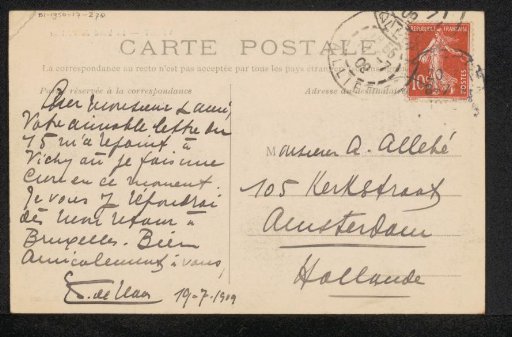 BI-1950-17-270
CARTE POSTALE
La correspondance au recto n'est pas acceptée par tous les pays étran
Partie réservée à la correspondance
Adresse du destinataire
RÉPUBLIQUE FRANÇAISE
10
POSTES
Cher Monsieur et ami,
Votre aimable lettre du
15 m'a rejoint à
Vichy où je fais une
Cure en ce moment.
Je vous y répondrai
dès mon retour à
Bruxelles. Bien
Amicalement à vous,
19-7-1909
Monsieur A. Allebé
105 Kerkstraat
Amsterdam
Hollande